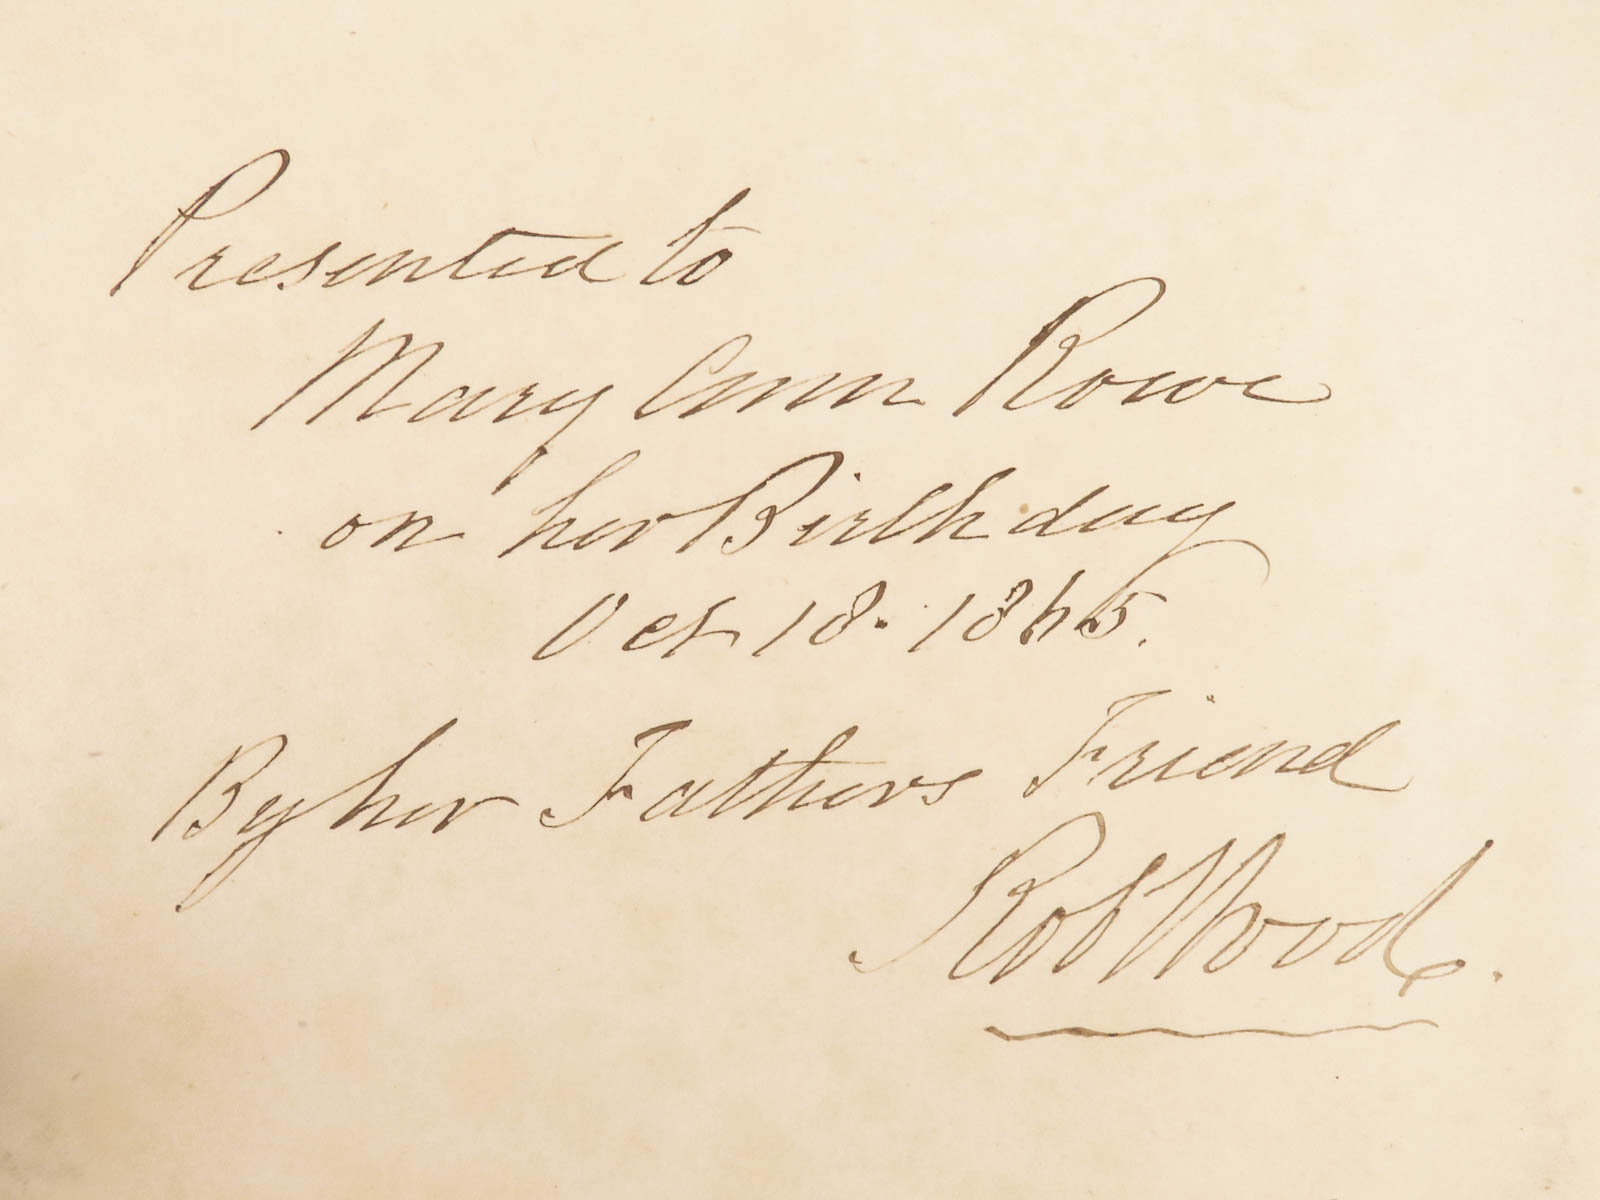 Presented to
Mary Ann Rowe
on her Birthday
Oct 18. 1865.
By her Fathers Friend
Rob Wood.